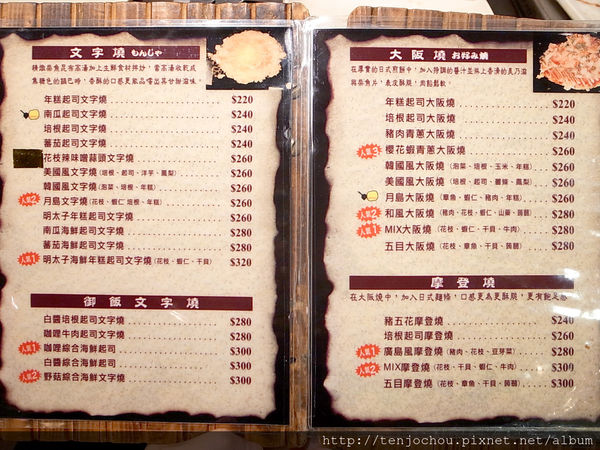 文字燒 もんじゃ
年糕起司文字燒 $220
南瓜起司文字燒 $240
培根起司文字燒 $240
蕃茄起司文字燒 $240
花枝辣味噌蒜頭文字燒 $260
美國風文字燒(培根、起司、洋芋、鳳梨) $260
韓國風文字燒(泡菜、培根、年糕) $260
人氣2 月島文字燒(花枝、蝦仁 培根、年糕) $260
明太子年糕起司文字燒 $260
南瓜海鮮起司文字燒 $280
蕃茄海鮮起司文字燒 $280
人氣1 明太子海鮮年糕起司文字燒(花枝、蝦仁、干貝) $320
御飯文字燒
白醬培根起司文字燒 $280
咖哩牛肉起司文字燒 $280
人氣1 咖哩綜合海鮮起司 $300
白醬綜合海鮮起司 $300
人氣2 野菇綜合海鮮文字燒 $300
大阪燒 お好み燒
年糕起司大阪燒 $220
培根起司大阪燒 $240
豬肉青蔥大阪燒 $260
人氣3 櫻花蝦青蔥大阪燒 $260
韓國風大阪燒(泡菜、培根、玉米、年糕) $260
美國風大阪燒(培根、起司、薯條、鳳梨) $260
月島大阪燒(章魚、蝦仁、豬肉、年糕) $260
人氣2 和風大阪燒(豬肉、花枝、蝦仁、山藥、蒟蒻) $280
人氣1 MIX大阪燒(花枝、蝦仁、干貝、牛肉) $280
五目大阪燒(花枝、章魚、干貝、蒟蒻) $280
摩登燒
在大阪燒中，加入日式麵條，口感更為更酥脆，更有飽足感
豬五花摩登燒 $240
培根起司摩登燒 $260
人氣1 廣島風摩登燒(豬肉、花枝、豆芽菜) $280
人氣2 MIX摩登燒(花枝、干貝、蝦仁、牛肉) $300
五目摩登燒(花枝、章魚、干貝、蒟蒻) $300
http://tenjochou.pixnet.net/album